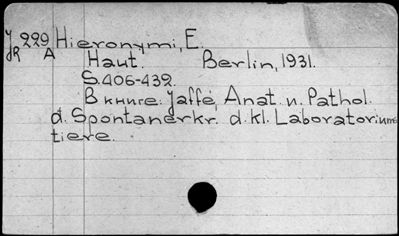 JR 229 A Hieronymi, E.
Haut. Berlin, 1931.
S. 406-439.
В книге. Jaffé, Anat. u. Pathol.
d. Spontanerkr. d. kl. Laboratoriums
tiere.